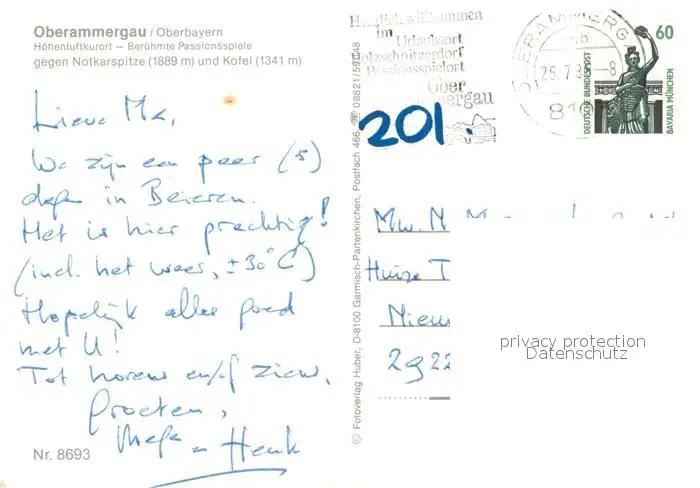 Oberammergau / Oberbayern
Höhenluftkurort – Berühmte Passionsspiele
gegen Notkarspitze (1889 m) und Kofel (1341 m)
Lieve
We zijn een paar (5)
dagen in Beieren.
Het is hier prachtig!
(incl. het weer, ±30°C)
Hopelijk alles goed
met U!
Tot horens en/of ziens,
Groeten,
en Henk
Nr. 8693
© Fotoverlag Huber, D-8100 Garmisch-Partenkirchen, Postfach 466, 08821/59148
Herzlich willkommen
im
Urlaubsort
Holzschnitzerdorf
Passionsspielort
Ober
ammergau
201.
OBERAMMERG
25.7.8 -8
810
60
DEUTSCHE BUNDESPOST
BAVARIA MÜNCHEN
Mw. N
Huize T
Nieuw
2922
privacy protection
Datenschutz